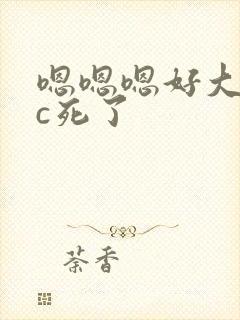 嗯嗯嗯好大
c死了
荼香